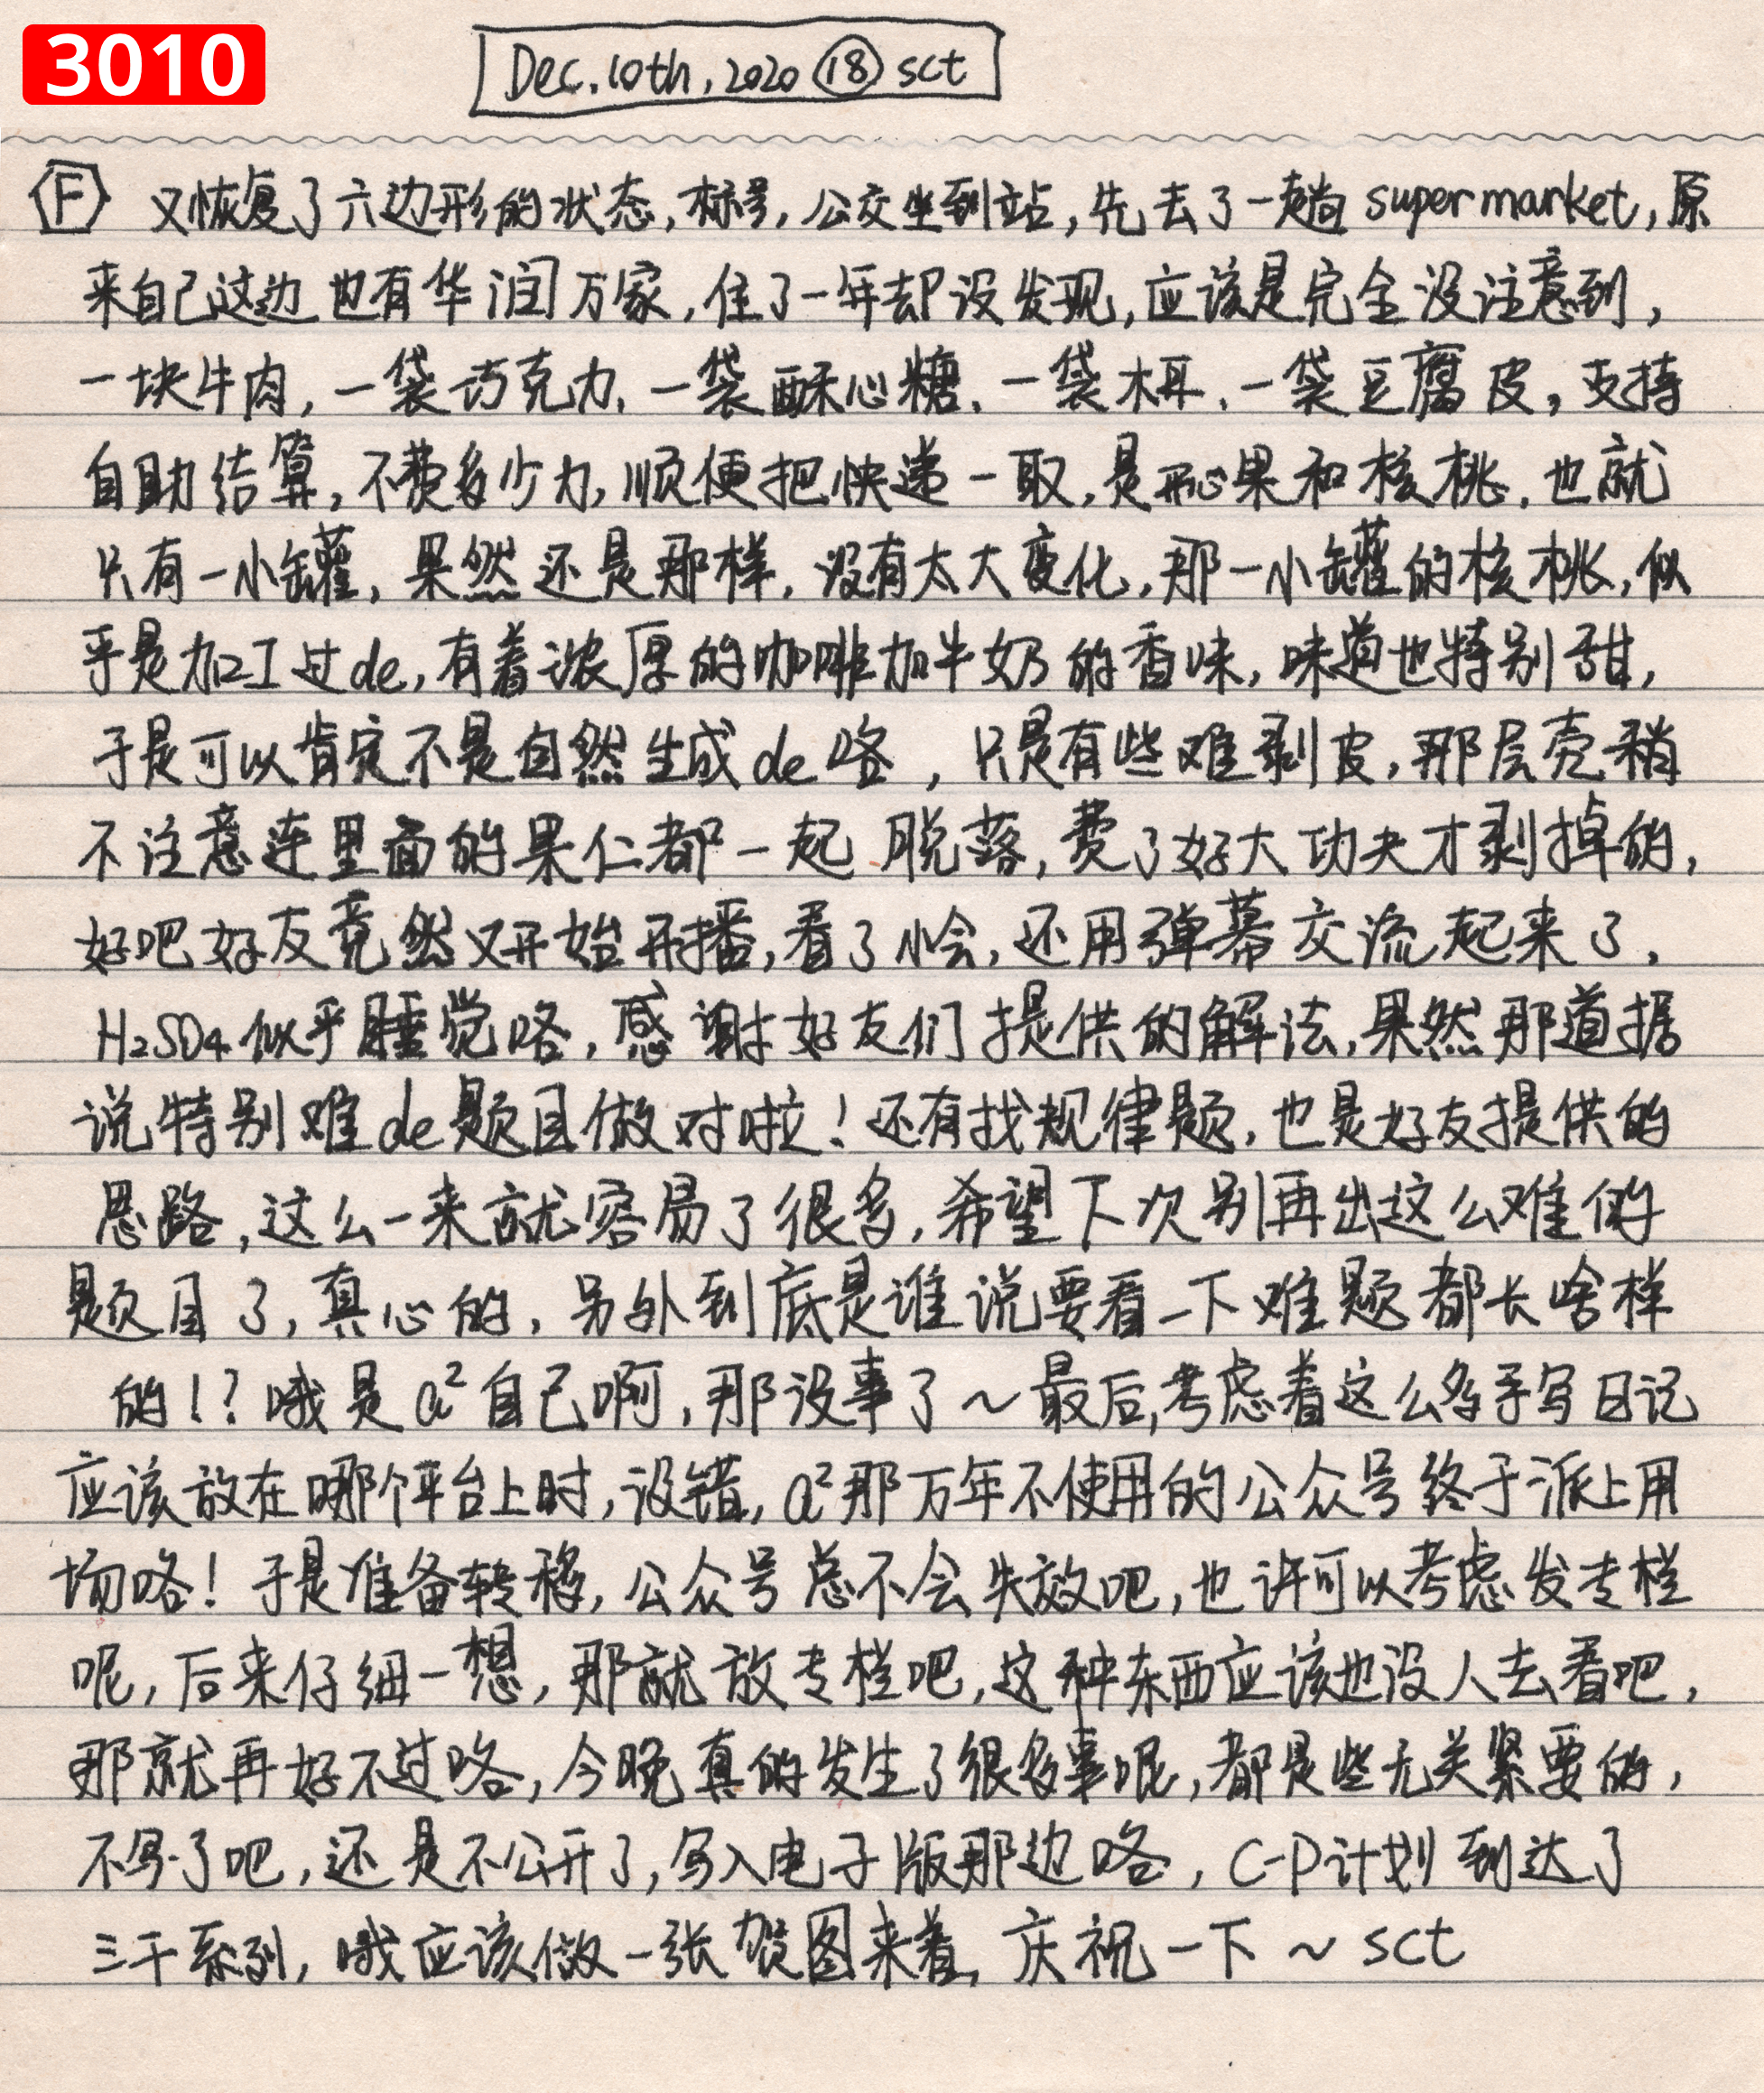 3010
Dec.10th,2020 ⑱ sct
F 又恢复了六边形的状态,标号,公交坐到站,先去了一趟supermarket,原
来自己这边也有华润万家,住了一年却没发现,应该是完全没注意到,
一块牛肉,一袋巧克力、一袋酥心糖、一袋木耳、一袋豆腐皮,支持
自助结算,不费多少力,顺便把快递一取,是开心果和核桃,也就
只有一小罐,果然还是那样,没有太大变化,那一小罐的核桃,似
乎是加工过de,有着浓厚的咖啡加牛奶的香味,味道也特别甜,
于是可以肯定不是自然生成de咯,只是有些难剥皮,那层壳稍
不注意连里面的果仁都一起脱落,费了好大功夫才剥掉的,
好吧好友竟然又开始开播,看了小会,还用弹幕交流起来了,
H₂SO₄似乎睡觉咯,感谢好友们提供的解法,果然那道据
说特别难de题目做对啦!还有找规律题,也是好友提供的
思路,这么一来就容易了很多,希望下次别再出这么难的
题目了,真心的,另外到底是谁说要看一下难题都长啥样
的!?哦是a²自己啊,那没事了~最后,考虑着这么多手写日记
应该放在哪个平台上时,没错,a²那万年不使用的公众号终于派上用
场咯!于是准备转移,公众号总不会失效吧,也许可以考虑发专栏
呢,后来仔细一想,那就放专栏吧,这种东西应该也没人去看吧,
那就再好不过咯,今晚真的发生了很多事呢,都是些无关紧要的,
不写了吧,还是不公开了,写入电子版那边咯,C-P计划到达了
三千系列,哦应该做一张贺图来着,庆祝一下~sct